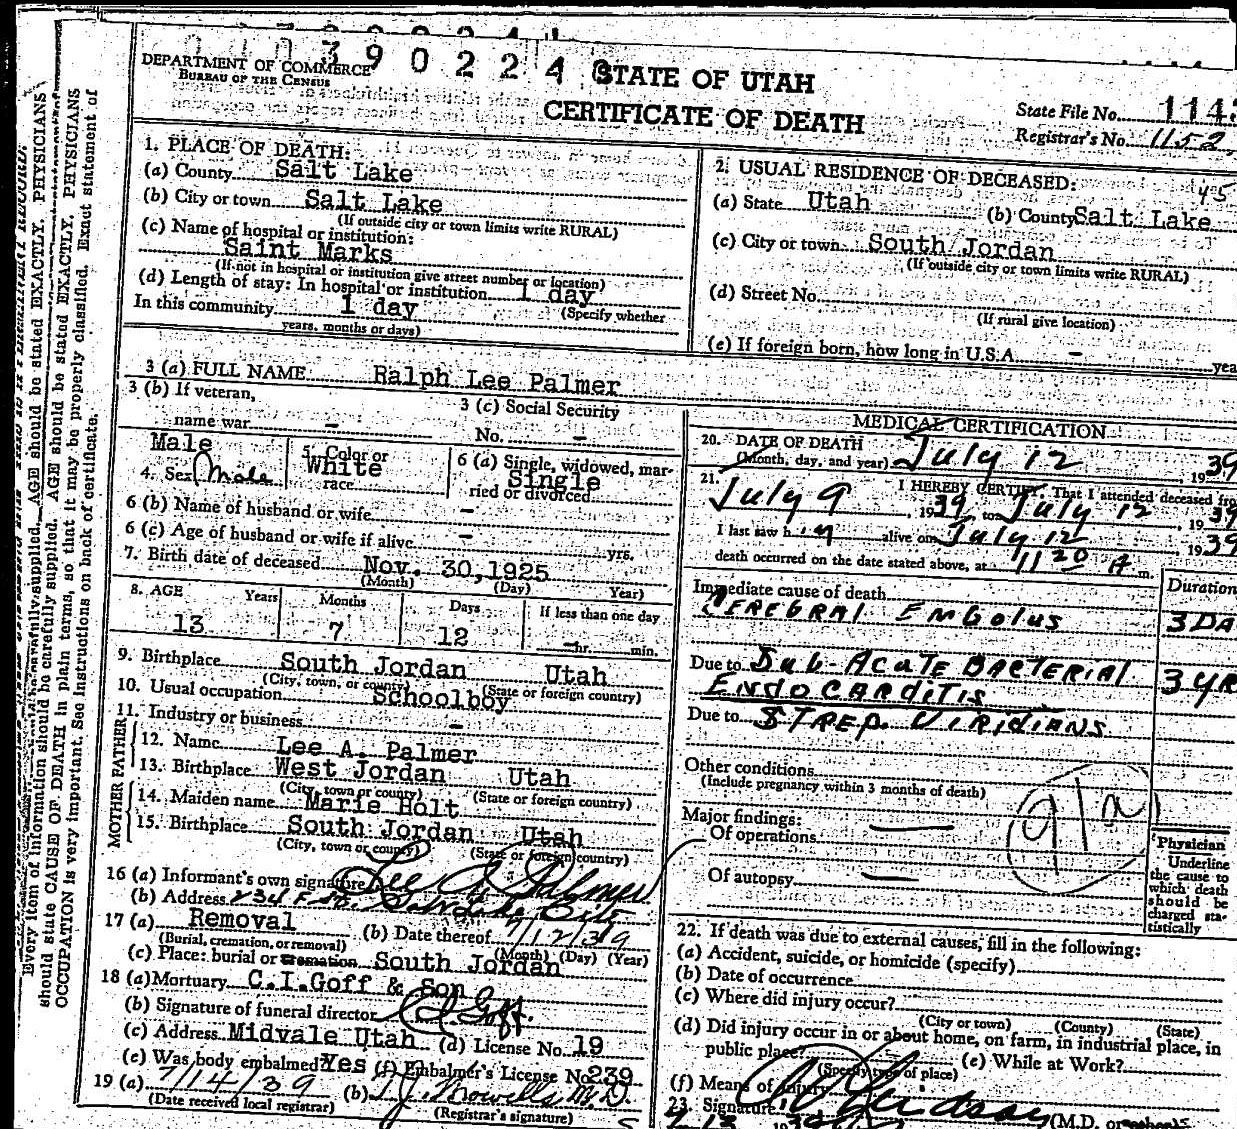 390224
DEPARTMENT OF COMMERCE
BUREAU OF THE CENSUS
STATE OF UTAH
CERTIFICATE OF DEATH
State File No. 114
Registrar's No. 1152
Every item of information should be carefully supplied. AGE should be stated EXACTLY. PHYSICIANS
should state CAUSE OF DEATH in plain terms, so that it may be properly classified. Exact statement of
OCCUPATION is very important. See instructions on back of certificate.
1. PLACE OF DEATH:
(a) County Salt Lake
(b) City or town Salt Lake
(If outside city or town limits write RURAL)
(c) Name of hospital or institution:
Saint Marks
(If not in hospital or institution give street number or location)
(d) Length of stay: In hospital or institution 1 day
(Specify whether
In this community 1 day
years, months or days)
2. USUAL RESIDENCE OF DECEASED:
45
(a) State Utah (b) County Salt Lake
(c) City or town South Jordan
(If outside city or town limits write RURAL)
(d) Street No.
(If rural give location)
(e) If foreign born, how long in U.S.A. - yea
3 (a) FULL NAME Ralph Lee Palmer
3 (b) If veteran,
name war -
3 (c) Social Security
No. -
Male
4. Sex Male
5. Color or
White
race
6 (a) Single, widowed, mar-
Single
ried or divorced
6 (b) Name of husband or wife -
6 (c) Age of husband or wife if alive - yrs.
7. Birth date of deceased Nov. 30, 1925
(Month) (Day) Year)
8. AGE Years Months Days If less than one day
13 7 12 - hr. min.
9. Birthplace South Jordan Utah
(City, town, or county) (State or foreign country)
10. Usual occupation Schoolboy
11. Industry or business -
FATHER
12. Name Lee A. Palmer
13. Birthplace West Jordan Utah
(City, town or county) (State or foreign country)
MOTHER
14. Maiden name Marie Holt
15. Birthplace South Jordan Utah
(City, town or county) (State or foreign country)
16 (a) Informant's own signature Lee A Palmer
(b) Address 234
17 (a) Removal (b) Date thereof 7/12/39
(Burial, cremation, or removal) (Month) (Day) (Year)
(c) Place: burial or cremation South Jordan
18 (a) Mortuary C.I.Goff & Son
(b) Signature of funeral director Goff.
(c) Address Midvale Utah (d) License No. 19
(e) Was body embalmed? Yes (f) Embalmer's License No. 239
19 (a) 7/14/39 (b) M.D.
(Date received local registrar) (Registrar's signature)
MEDICAL CERTIFICATION
20. DATE OF DEATH
(Month, day, and year) July 12 1939
21. I HEREBY CERTIFY, That I attended deceased fro
July 9, 1939 to July 12, 1939
I last saw h im alive on July 12 1939
death occurred on the date stated above, at 11 20 A m.
Immediate cause of death Duration
CEREBRAL EMBOLUS 3 DA
Due to SUB-ACUTE BACTERIAL
ENDOCARDITIS 3 YR
Due to STREP. VIRIDIANS
Other conditions
(Include pregnancy within 3 months of death)
91a
Major findings:
Of operations —
Of autopsy —
Physician
Underline
the cause to
which death
should be
charged sta-
tistically
22. If death was due to external causes, fill in the following:
(a) Accident, suicide, or homicide (specify)
(b) Date of occurrence
(c) Where did injury occur?
(City or town) (County) (State)
(d) Did injury occur in or about home, on farm, in industrial place, in
public place? (e) While at Work?
(Specify type of place)
(f) Means of injury
23. Signature Lindsay (M.D. or other)
7 13 1939